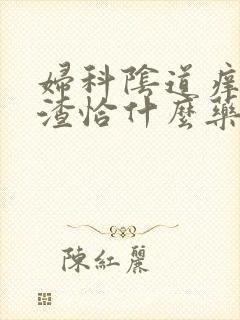 婦科陰道痒
渣恰什麼藥
陳紅麗